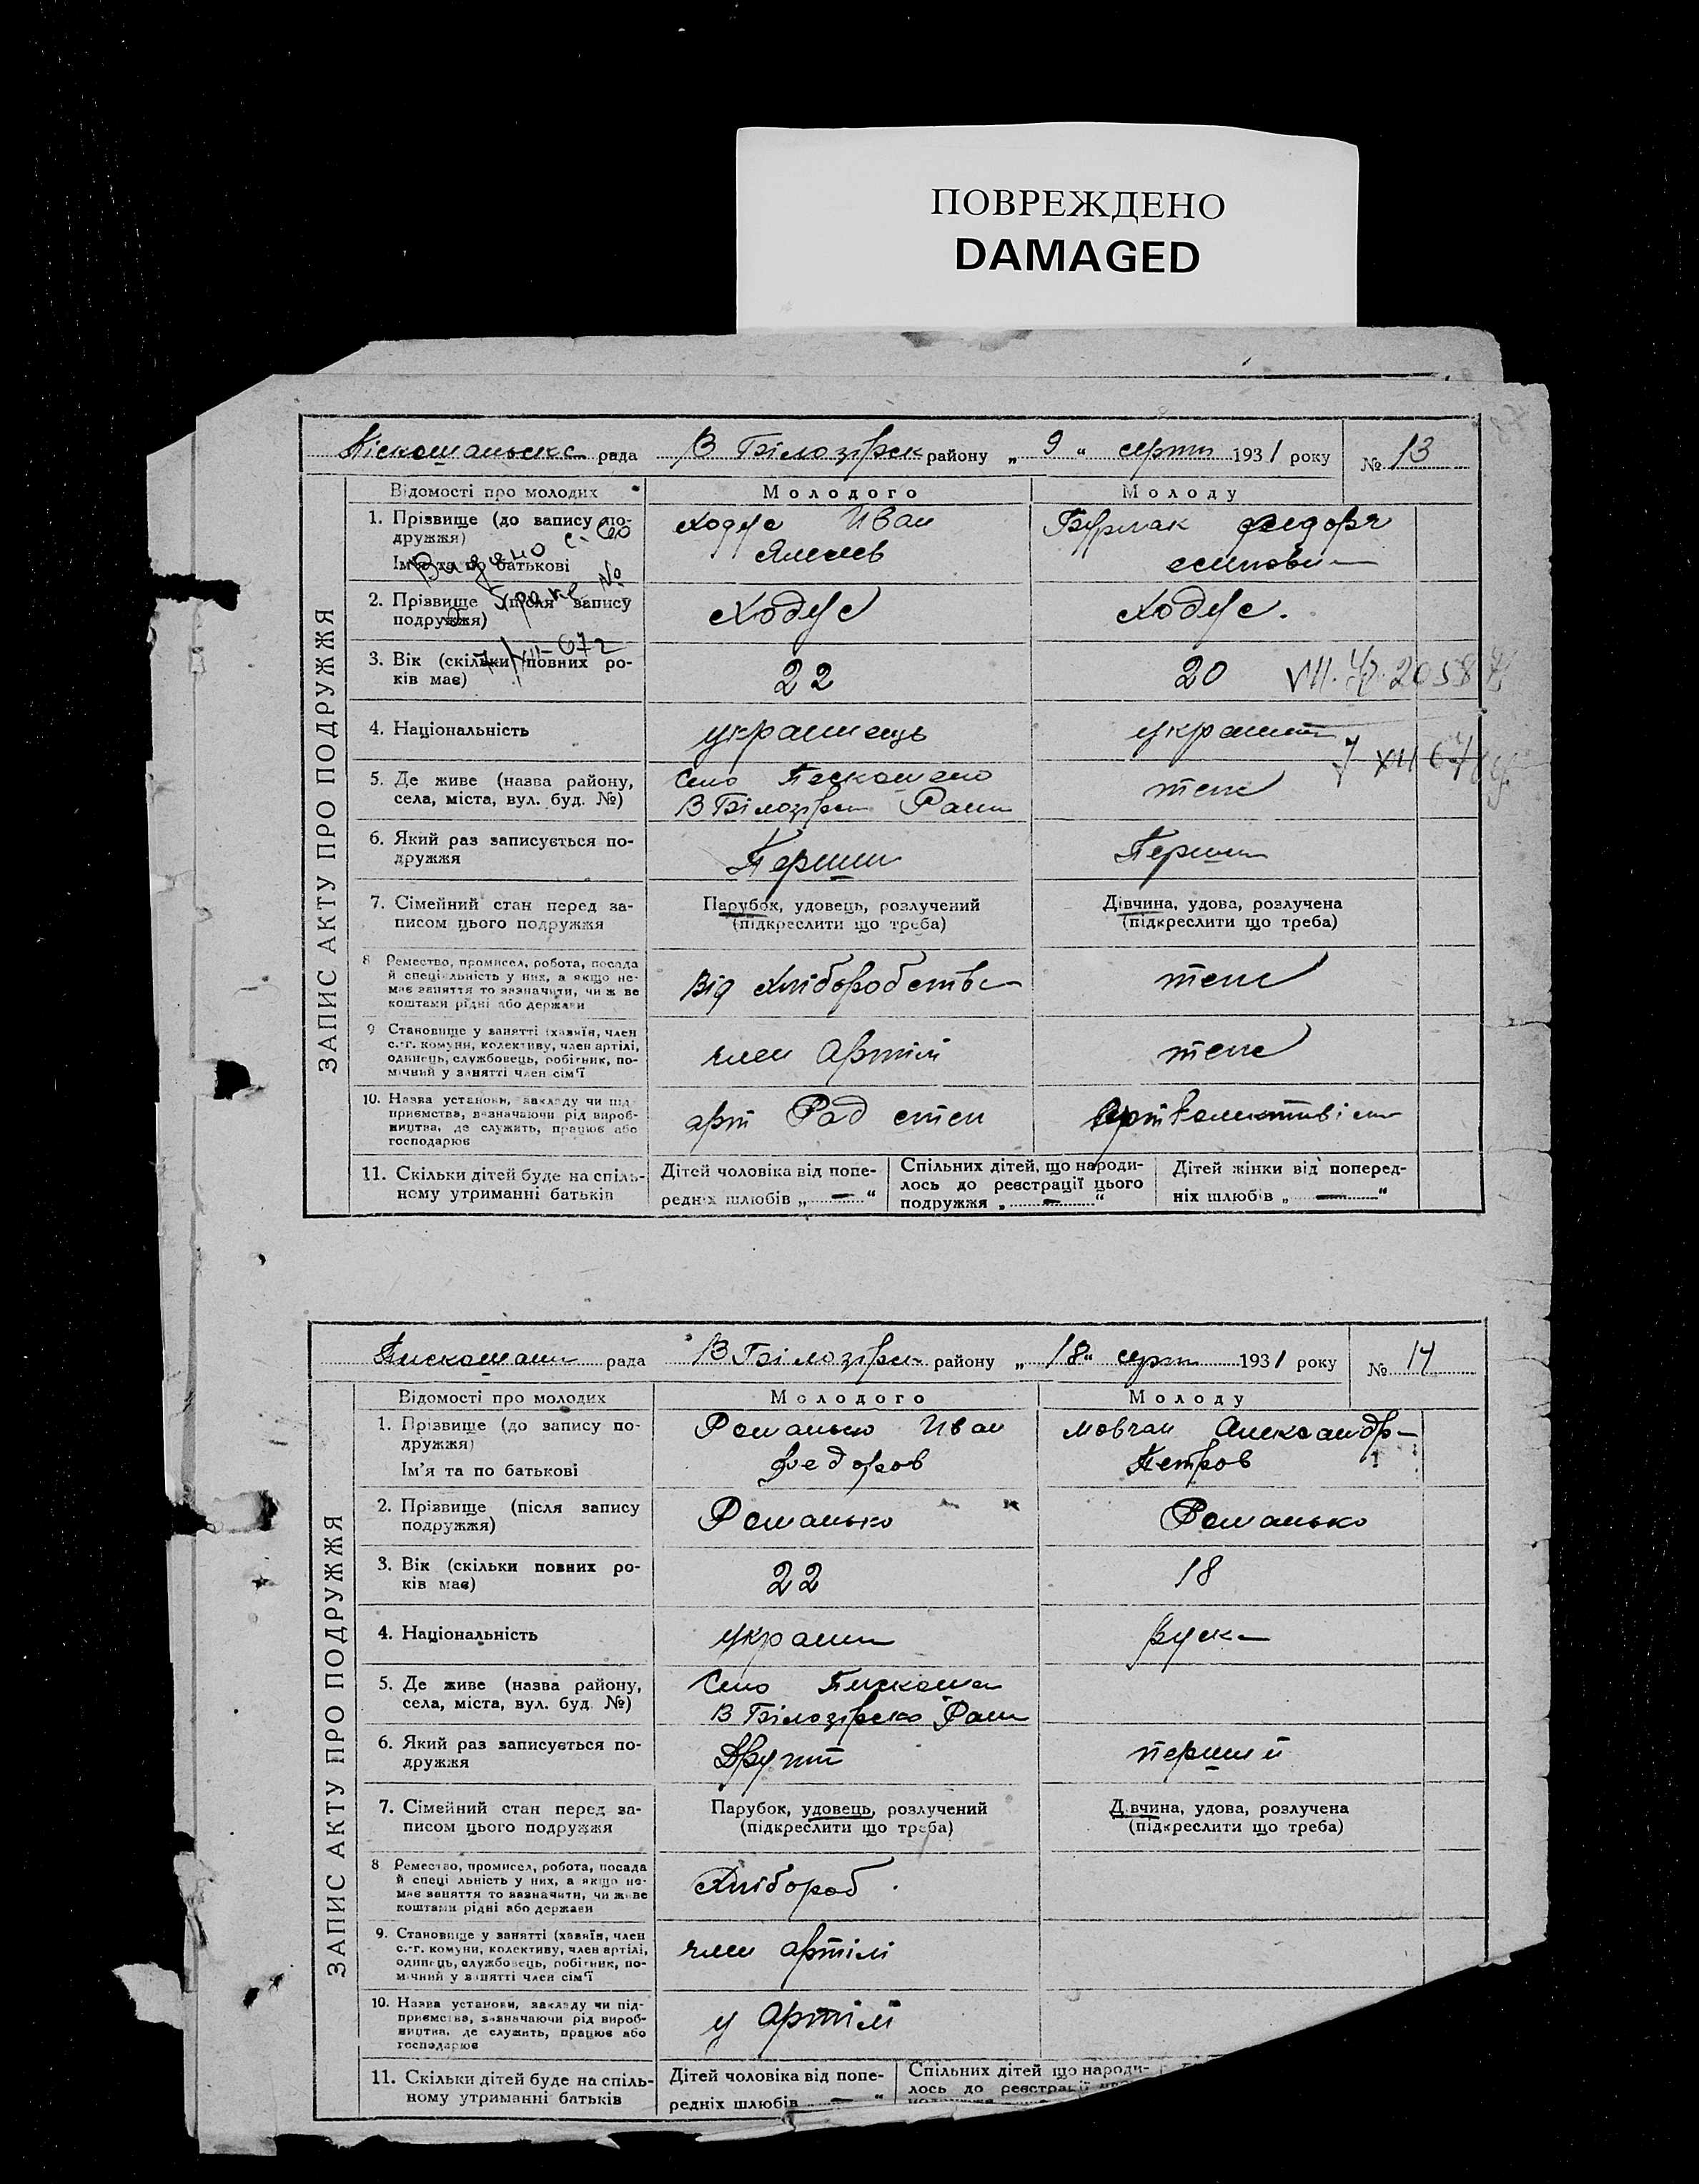 ПОВРЕЖДЕНО
DAMAGED
рада В Білозірск району „ 9 “ серпн 1931 року № 13
ЗАПИС АКТУ ПРО ПОДРУЖЖЯ
Відомості про молодих Молодого Молоду
1. Прізвище (до запису подружжя) Ім'я та по батькові
Ходус Иван
Бурлак
2. Прізвище (після запису подружжя)
Ходус Ходус.
Видано
3. Вік (скільки повних років має)
22 20
4. Національність
українець україн
7 XII 67
5. Де живе (назва району, села, міста, вул. буд. №)
Село
В Білозірск Раин
теж
6. Який раз записується подружжя
Перши Перши
7. Сімейний стан перед записом цього подружжя
Парубок, удовець, розлучений (підкреслити що треба)
Дівчина, удова, розлучена (підкреслити що треба)
8 Ремество, промисел, робота, посада й спеціальність у них, а якщо немає заняття то зазначити, чи живе коштами рідні або держави
Від Хліборобства теж
9 Становище у занятті (хазяїн, член с.-г. комуни, колективу, член артілі, одинець, службовець, робітник, помічний у занятті член сім'ї
член артілі теж
10. Назва установи, закладу чи підприємства, зазначаючи рід виробництва, де служить, працює або господарює
арт Рад степ
11. Скільки дітей буде на спільному утриманні батьків
Дітей чоловіка від попередніх шлюбів „ — “
Спільних дітей, що народилось до реєстрації цього подружжя „ — “
Дітей жінки від попередніх шлюбів „ — “
рада В Білозірск району „ 18 “ серпн 1931 року № 14
ЗАПИС АКТУ ПРО ПОДРУЖЖЯ
Відомості про молодих Молодого Молоду
1. Прізвище (до запису подружжя) Ім'я та по батькові
Романько Иван
Федоров
Мовчан Александр
Петров
2. Прізвище (після запису подружжя)
Романько Романько
3. Вік (скільки повних років має)
22 18
4. Національність
україн руска
5. Де живе (назва району, села, міста, вул. буд. №)
Село Пискоша
В Білозірско Раин
6. Який раз записується подружжя
перший
7. Сімейний стан перед записом цього подружжя
Парубок, удовець, розлучений (підкреслити що треба)
Дівчина, удова, розлучена (підкреслити що треба)
8 Ремество, промисел, робота, посада й спеціальність у них, а якщо немає заняття то зазначити, чи живе коштами рідні або держави
Хлібороб.
9. Становище у занятті (хазяїн, член с.-г. комуни, колективу, член артілі, одинець, службовець, робітник, помічний у занятті член сім'ї
член артілі
10. Назва установи, закладу чи підприємства, зазначаючи рід виробництва, де служить, працює або господарює
у артілі
11. Скільки дітей буде на спільному утриманні батьків
Дітей чоловіка від попередніх шлюбів „ — “
Спільних дітей що народилось до реєстрації